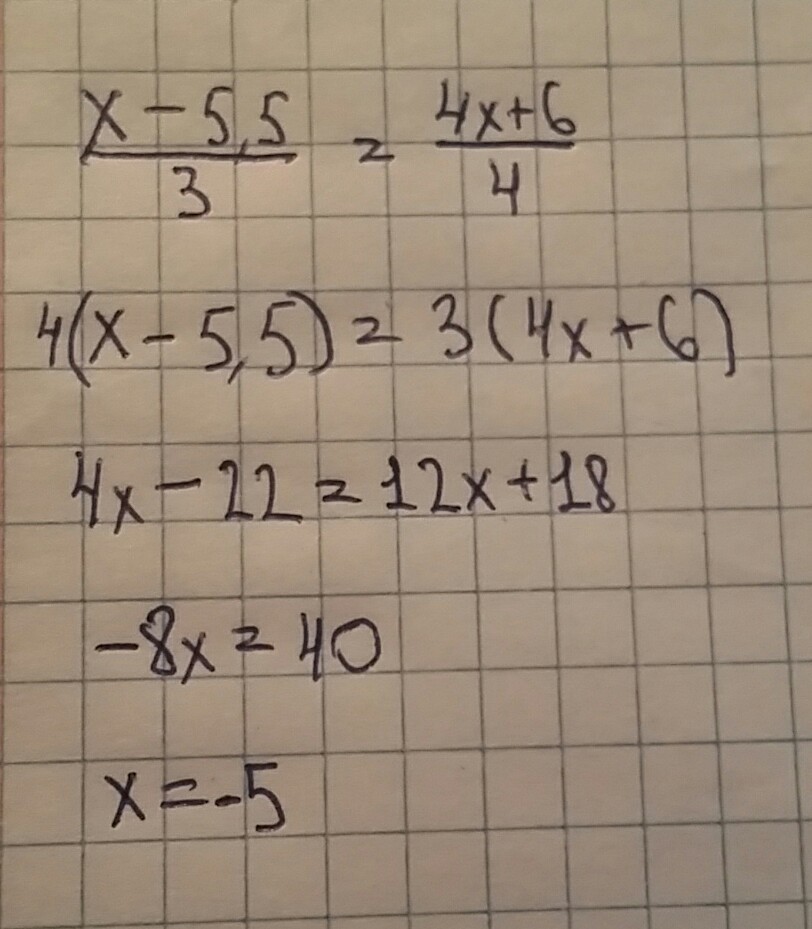 x - 5,5 / 3 = 4x+6 / 4
4(x - 5,5) = 3(4x+6)
4x - 22 = 12x + 18
-8x = 40
x = -5